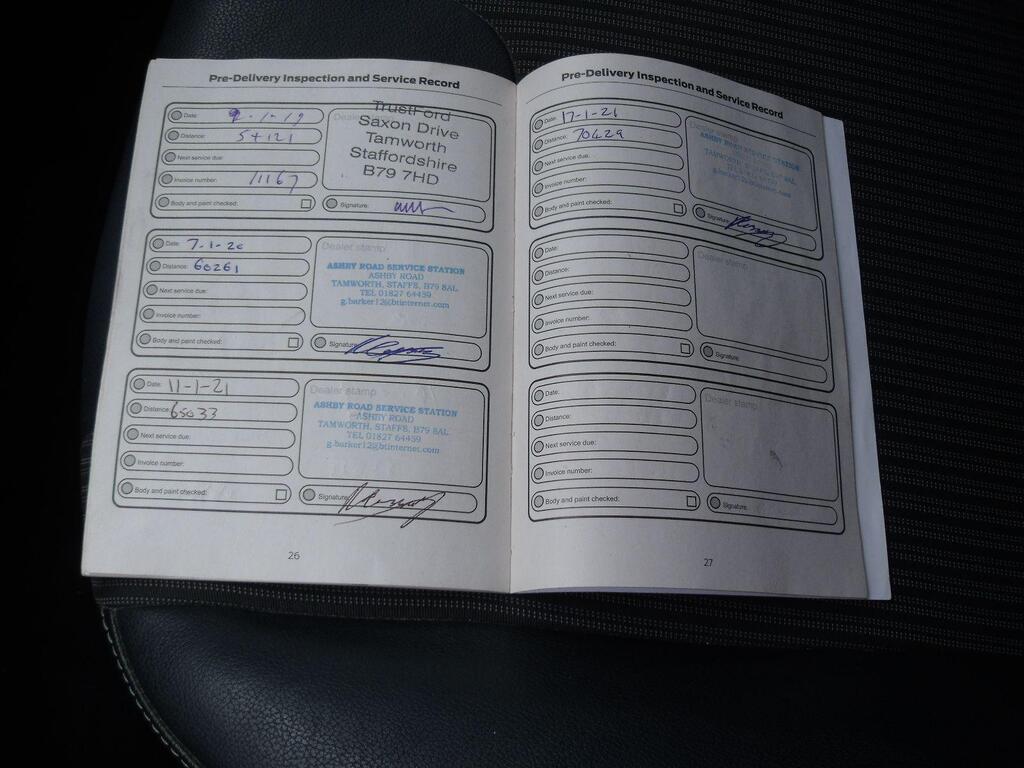 Pre-Delivery Inspection and Service Record
Date: -1-19
Distance: 54121
Next service due:
Invoice number: 11167
Body and paint checked:
Dealer
TrustFord
Saxon Drive
Tamworth
Staffordshire
B79 7HD
Signature:
Date: 7-1-20
Distance: 60261
Next service due:
Invoice number:
Body and paint checked:
Dealer stamp
ASHBY ROAD SERVICE STATION
ASHBY ROAD
TAMWORTH, STAFFS, B79 8AL
TEL 01827 64459
g.barker12@btinternet.com
Signature:
Date: 11-1-21
Distance: 65033
Next service due:
Invoice number:
Body and paint checked:
Dealer stamp
ASHBY ROAD SERVICE STATION
ASHBY ROAD
TAMWORTH, STAFFS, B79 8AL
TEL 01827 64459
g.barker12@btinternet.com
Signature:
26
Pre-Delivery Inspection and Service Record
Date: 17-1-21
Distance: 70429
Next service due:
Invoice number:
Body and paint checked:
Dealer stamp
ASHBY ROAD SERVICE STATION
Signature:
Date:
Distance:
Next service due:
Invoice number:
Body and paint checked:
Dealer stamp
Signature:
Date:
Distance:
Next service due:
Invoice number:
Body and paint checked:
Dealer stamp
Signature:
27